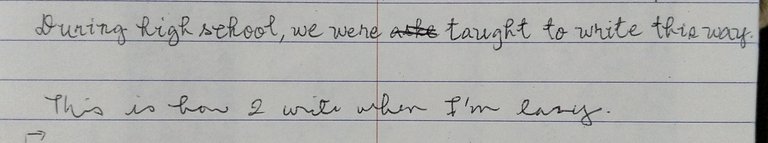 During high school, we were aske taught to write this way.
This is how I write when I'm lazy.